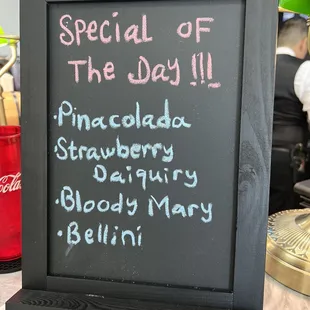 Special oF
The Day!!!
·Pinacolada
·Strawberry
Daiquiry
·Bloody Mary
·Bellini
Coca-Cola